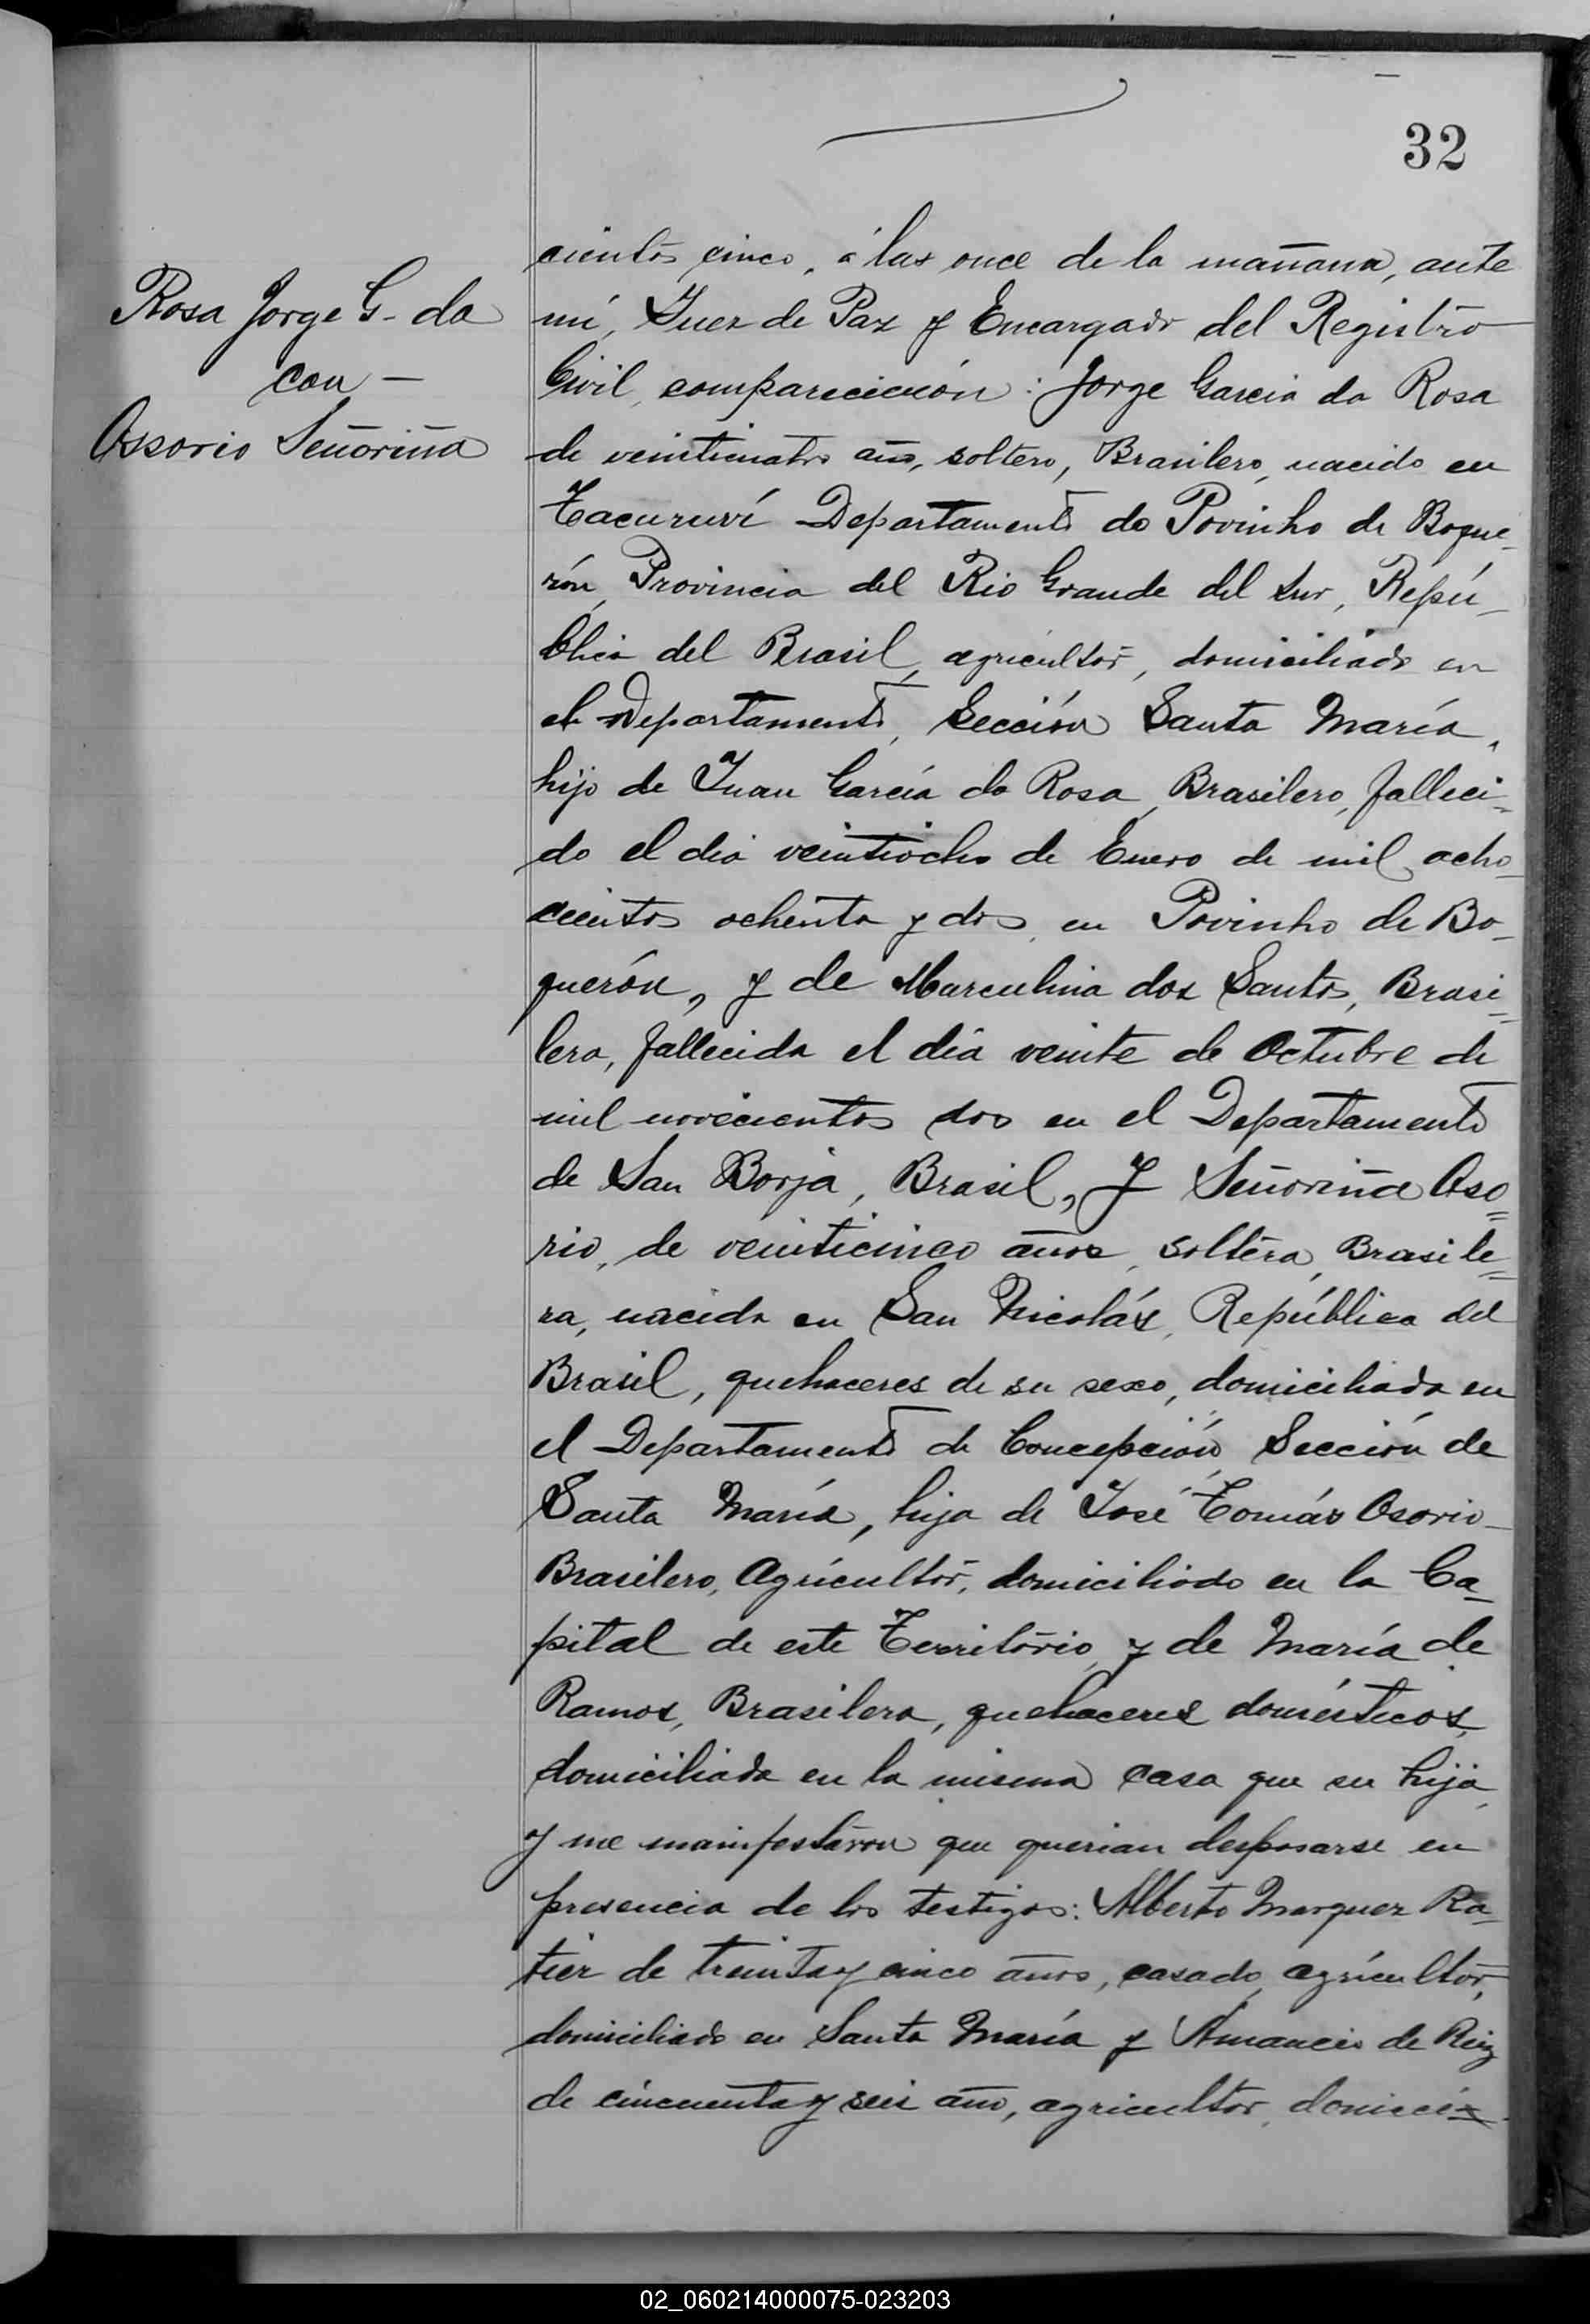 32
Rosa Jorge G. da
con —
Ossorio Señoriña
cientos cinco, á las once de la mañana, ante
mí, Juez de Paz y Encargado del Registro
Civil, comparecieron: Jorge Garcia da Rosa
de veinticuatro años, soltero, Brasilero, nacido en
Tacuruví Departamento do Povinho de Boque-
rón, Provincia del Rio Grande del Sur, Repú-
blica del Brasil, agricultor, domiciliado en
el Departamento, Sección Santa María,
hijo de Juan García da Rosa, Brasilero, falleci-
do el dia veintiocho de Enero de mil ocho-
cientos ochenta y dos, en Povinho de Bo-
querón, y de Marculina dos Santos, Brasi-
lera, fallecida el dia veinte de Octubre de
mil novecientos dos en el Departamento
de San Borja, Brasil, y Señoriña Oso-
rio, de veinticinco años, soltera, Brasile-
ra, nacida en San Nicolás, República del
Brasil, quehaceres de su sexo, domiciliada en
el Departamento de Concepción, Sección de
Santa María, hija de José Tomás Osorio
Brasilero, Agricultor, domiciliado en la Ca-
pital de este Territorio, y de María de
Ramos, Brasilera, quehaceres domésticos,
domiciliada en la misma casa que su hija,
y me manifestaron que querian desposarse en
presencia de los testigos: Alberto Marquez Ra-
tier de treinta y cinco años, casado, agricultor,
domiciliado en Santa María y Amancio de
de cincuenta y seis año, agricultor, domici-
02_060214000075-023203